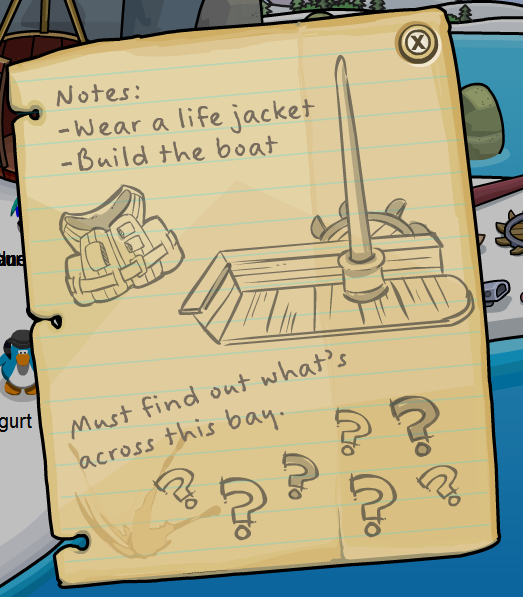 X
Notes:
-Wear a life jacket
-Build the boat
Must find out what's
across this bay.
? ? ? ? ? ? ?
gurt